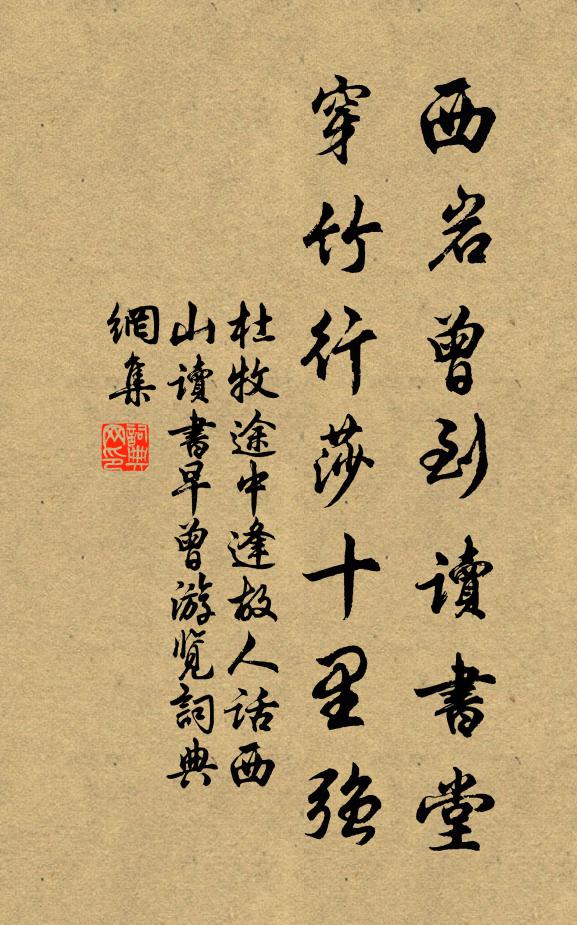 西岩曾到讀書堂
穿竹行莎十里強
杜牧途中逢故人話西
山讀書早曾游览詞典
網集
詞典
网印